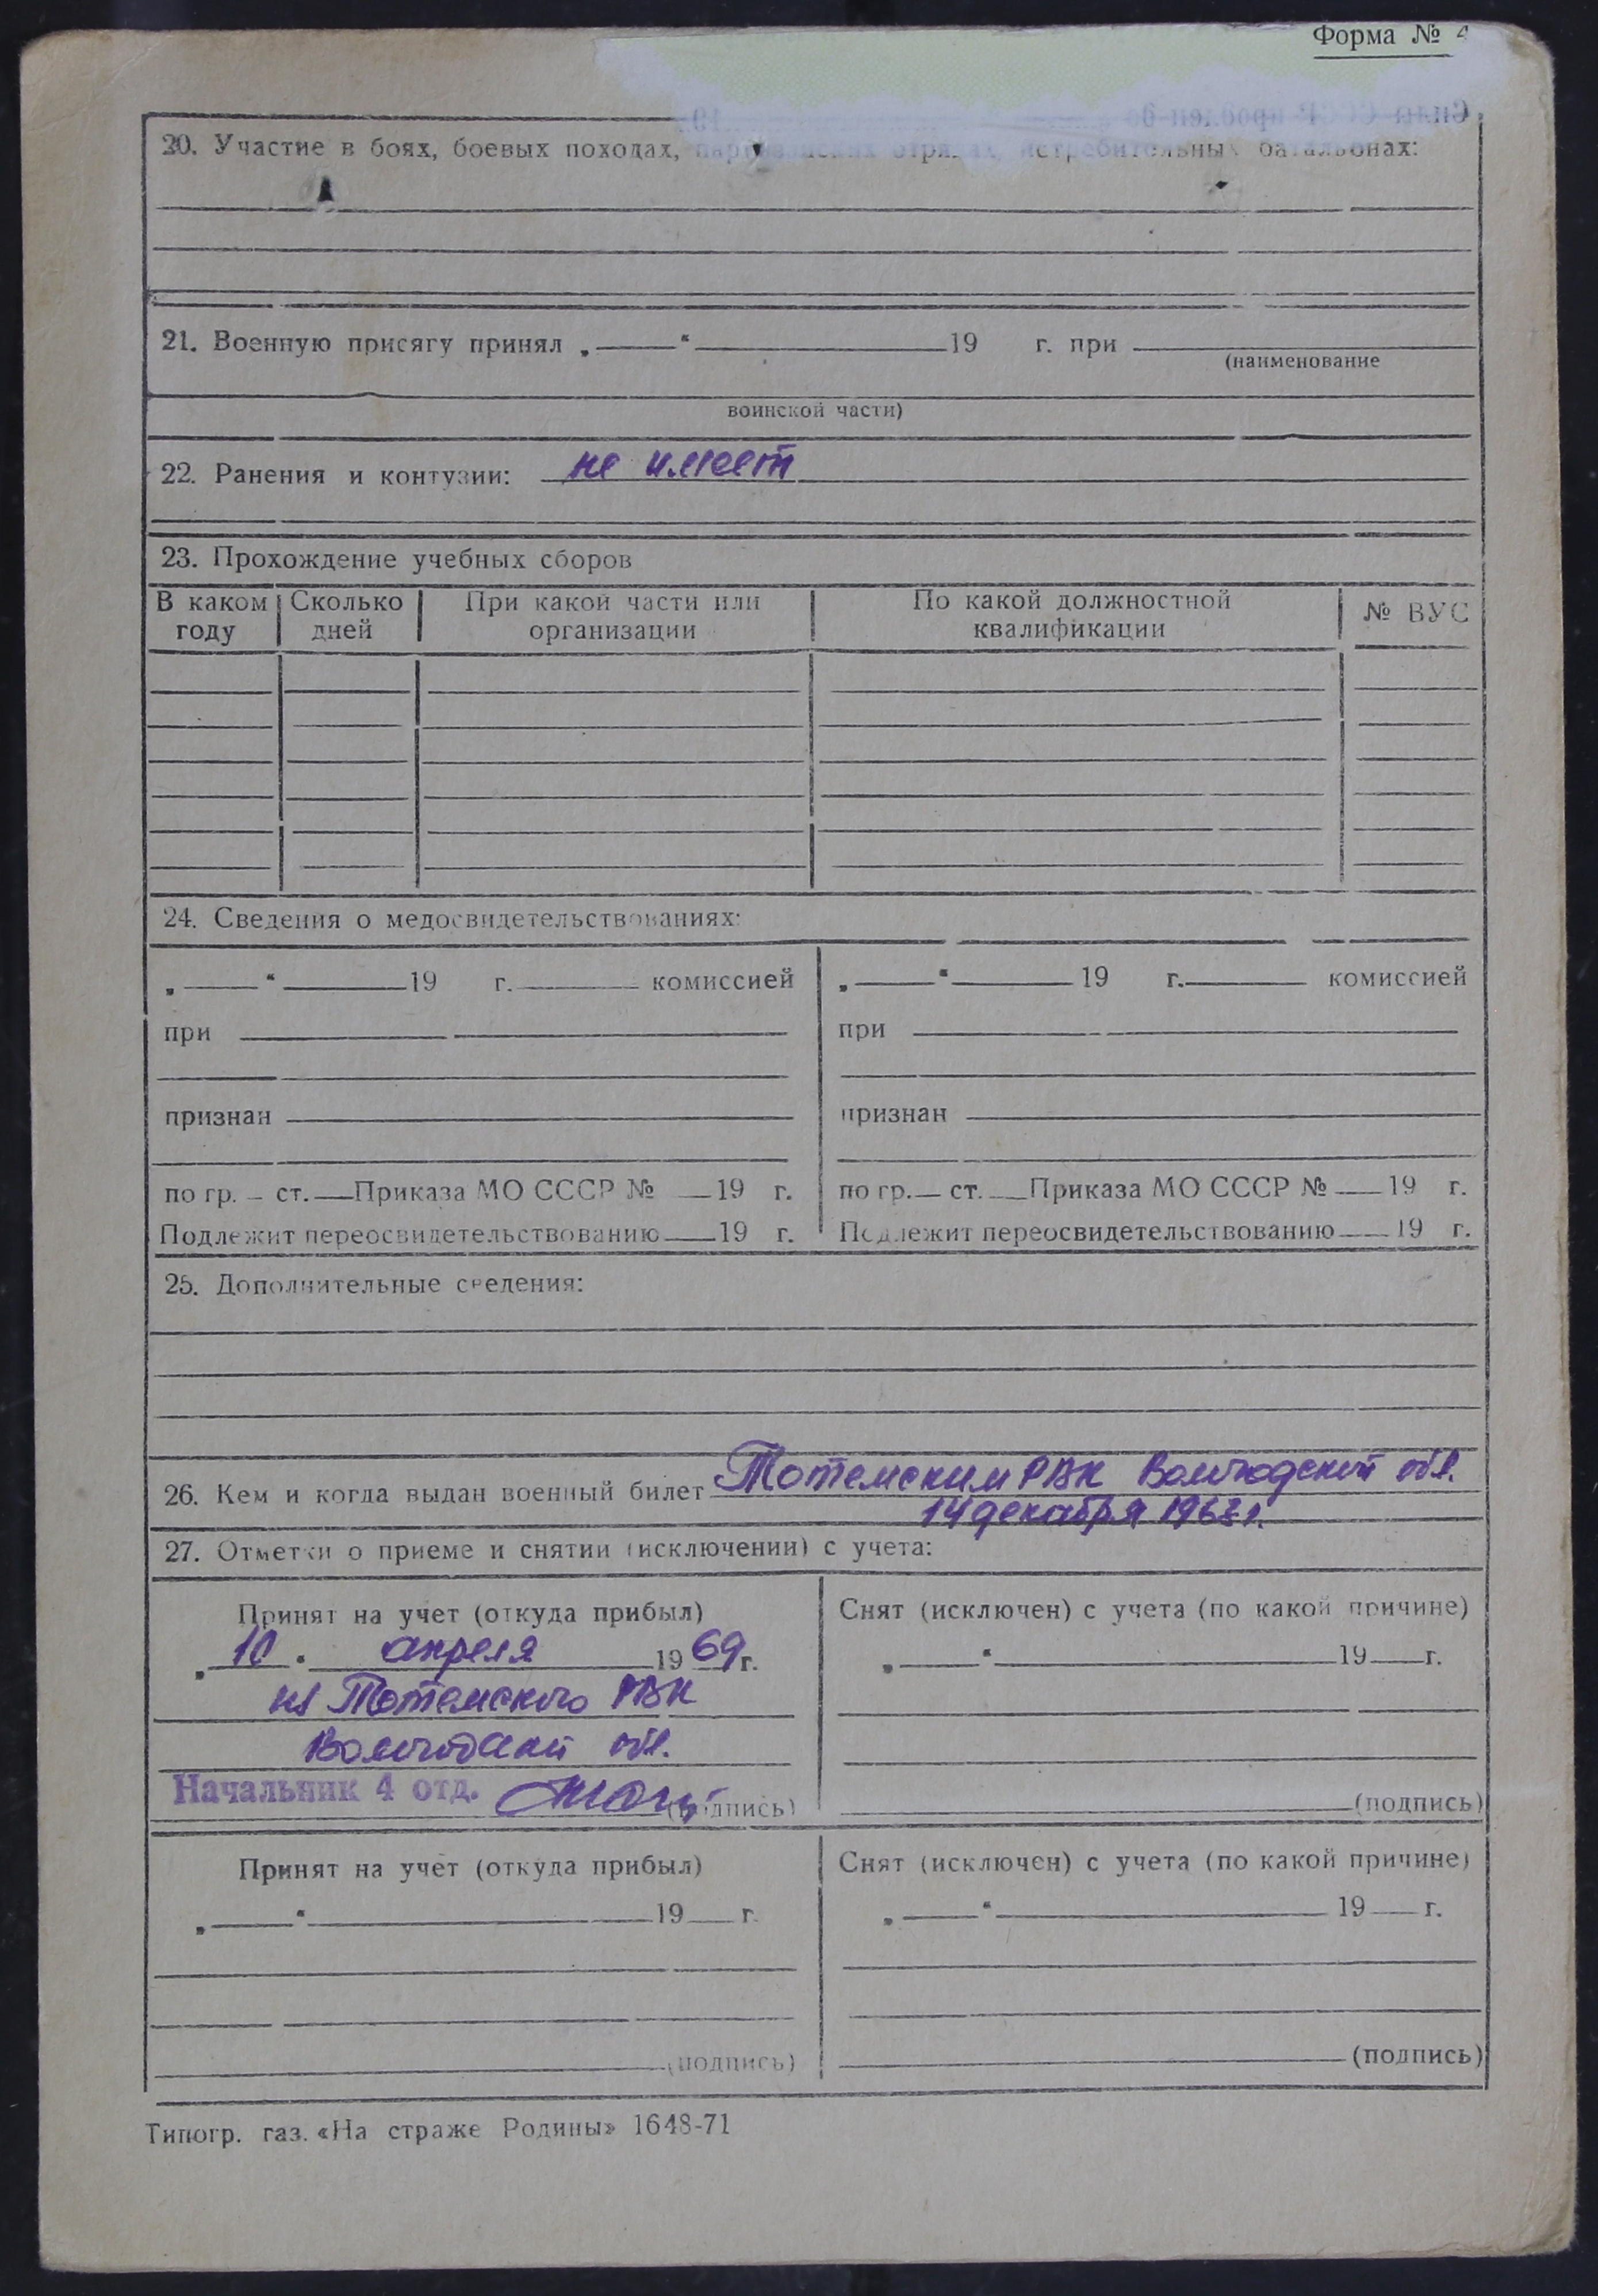 Форма № 4
20. Участие в боях, боевых походах, партизанских отрядах, истребительных батальонах:
21. Военную присягу принял „ “ 19 г. при
(наименование
воинской части)
22. Ранения и контузии: не имеет
23. Прохождение учебных сборов
В каком году Сколько дней При какой части или организации По какой должностной квалификации № ВУС
24. Сведения о медосвидетельствованиях:
„ “ 19 г. комиссией „ “ 19 г. комиссией
при при
признан признан
по гр. ст. Приказа МО СССР № 19 г. по гр. ст. Приказа МО СССР № 19 г.
Подлежит переосвидетельствованию 19 г. Подлежит переосвидетельствованию 19 г.
25. Дополнительные сведения:
26. Кем и когда выдан военный билет Тотемским РВК Вологодской обл.
14 декабря 1963 г.
27. Отметки о приеме и снятии (исключении) с учета:
Принят на учет (откуда прибыл) Снят (исключен) с учета (по какой причине)
„10“ апреля 1969 г. „ “ 19 г.
из Тотемского РВК
Вологодской обл.
Начальник 4 отд. (подпись) (подпись)
Принят на учет (откуда прибыл) Снят (исключен) с учета (по какой причине)
„ “ 19 г. „ “ 19 г.
(подпись) (подпись)
Типогр. газ. «На страже Родины» 1648-71